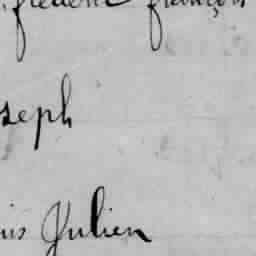 frédéric françois
seph
uis Julien